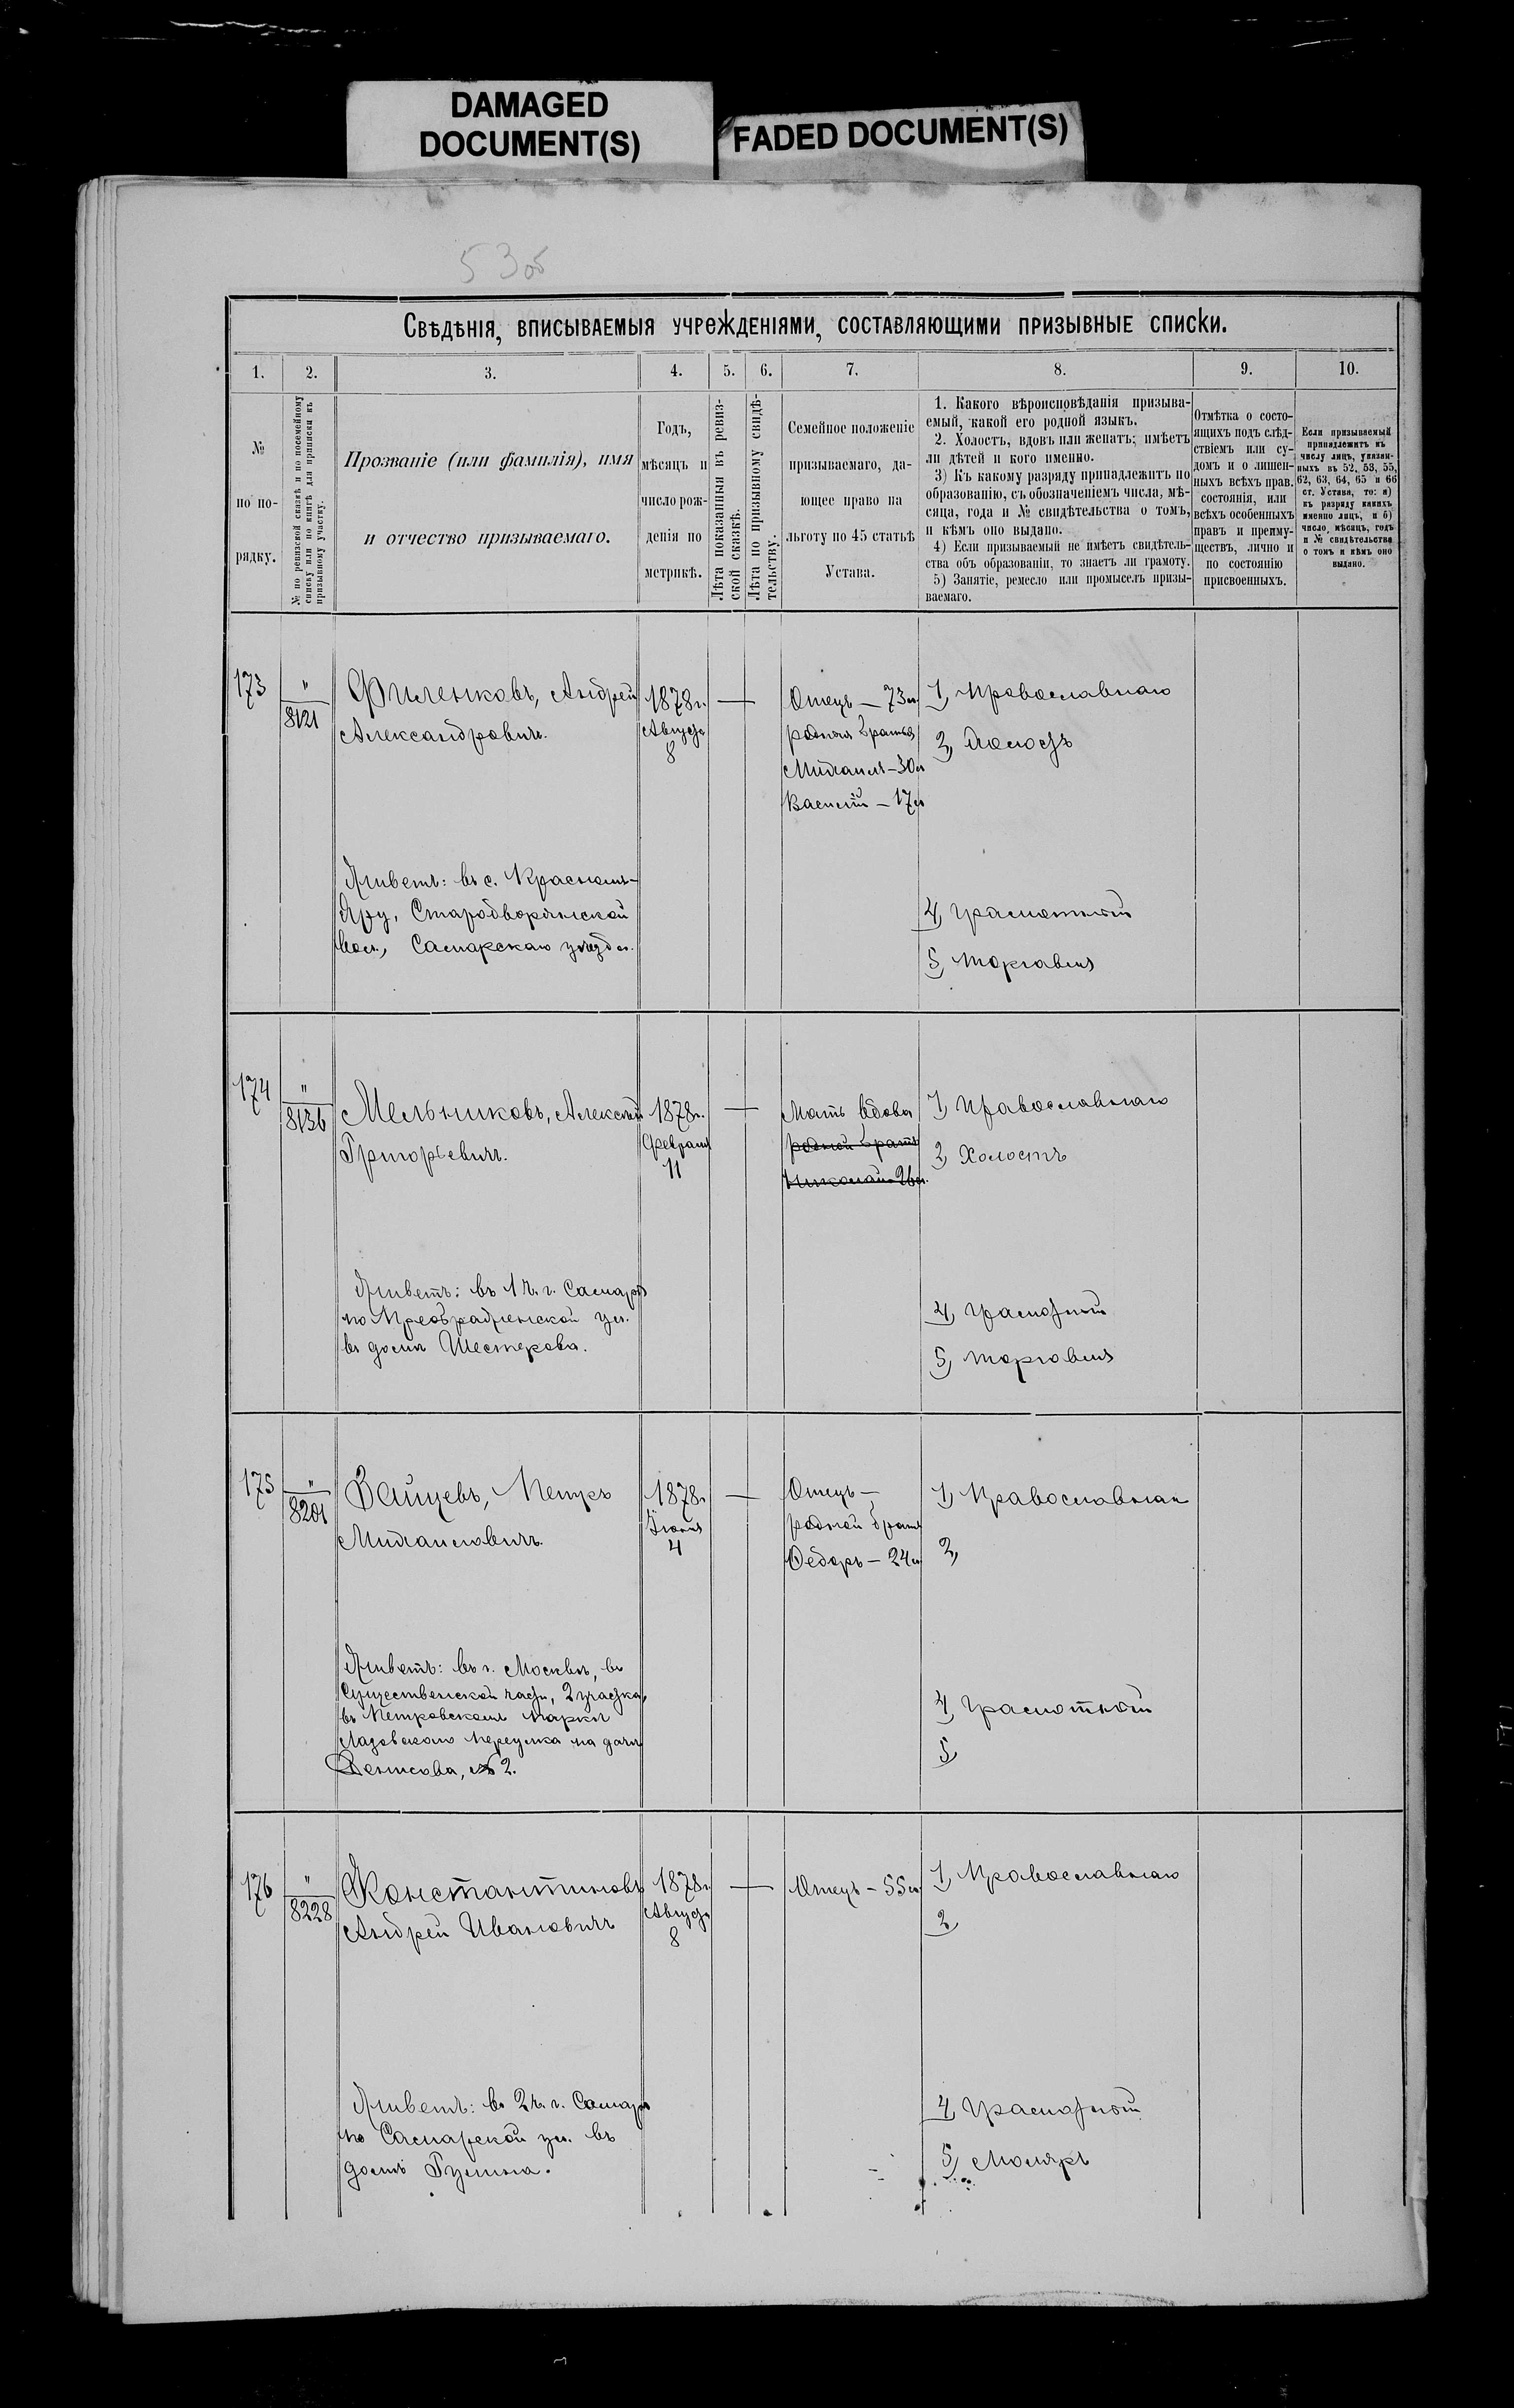 DAMAGED
DOCUMENT(S)
FADED DOCUMENT(S)
53об
Свѣдѣнія, вписываемыя учрежденіями, составляющими призывные списки.
1.
2.
3.
4.
5.
6.
7.
8.
9.
10.
№
по по-
рядку.
№ по ревизской сказкѣ и по посемейному
списку или по книгѣ для приписки къ
призывному участку.
Прозваніе (или фамилія), имя
и отчество призываемаго.
Годъ,
мѣсяцъ и
число рож-
денія по
метрикѣ.
Лѣта показанныя въ ревиз-
ской сказкѣ.
Лѣта по призывному свидѣ-
тельству.
Семейное положеніе
призываемаго, да-
ющее право на
льготу по 45 статьѣ
Устава.
1. Какого вѣроисповѣданія призыва-
емый, какой его родной языкъ.
2. Холостъ, вдовъ или женатъ; имѣетъ
ли дѣтей и кого именно.
3) Къ какому разряду принадлежитъ по
образованію, съ обозначеніемъ числа, мѣ-
сяца, года и № свидѣтельства о томъ,
и кѣмъ оно выдано.
4) Если призываемый не имѣетъ свидѣтель-
ства объ образованіи, то знаетъ ли грамоту.
5) Занятіе, ремесло или промыселъ призы-
ваемаго.
Отмѣтка о состо-
ящихъ подъ слѣд-
ствіемъ или су-
домъ и о лишен-
ныхъ всѣхъ прав.
состоянія, или
всѣхъ особенныхъ
правъ и преиму-
ществъ, лично и
по состоянію
присвоенныхъ.
Если призываемый
принадлежитъ къ
числу лицъ, указан-
ныхъ въ 52, 53, 55,
62, 63, 64, 65 и 66
ст. Устава, то: а)
къ разряду какихъ
именно лицъ, и б)
число, мѣсяцъ, годъ
и № свидѣтельства
о томъ и кѣмъ оно
выдано.
173
"
8121
Филенковъ, Андрей
Александровичъ.
Живетъ: въ с. Красномъ-
Яру, Стародворянской
вол., Самарскаго уѣзда.
1878 г.
Августа
8
Отецъ — 73 л
родные братья
Михаилъ – 30 л
Василій – 17 л
1, Православнаго
2, Холостъ
4, Грамотный
5, торговля
174
"
8136
Мельниковъ, Алексѣй
Григорьевичъ.
Живетъ: въ 1 ч. г. Самары
по Преображенской ул.
въ домѣ Шестерова.
1878 г.
Февраля
11
Мать вдова
родной братъ
Николай 26 л.
1, Православнаго
2, Холостъ
4, Грамотный
5, торговля
175
"
8201
Зайцевъ, Петръ
Михаиловичъ.
Живетъ: въ г. Москвѣ, въ
Сущевской части, 2 участка,
въ Петровскомъ паркѣ
переулка на дачѣ
Денисова, № 2.
1878 г
Іюня
4
Отецъ —
родной братъ
Ѳедоръ — 24 л
1, Православнаго
2,
4, Грамотный
5,
176
"
8228
Константиновъ
Андрей Ивановичъ
Живетъ: въ 2 ч. г. Самары
по Самарской ул. въ
домѣ
1878 г.
Августа
8
Отецъ – 55 л
1, Православнаго
2,
4, Грамотный
5, Маляръ